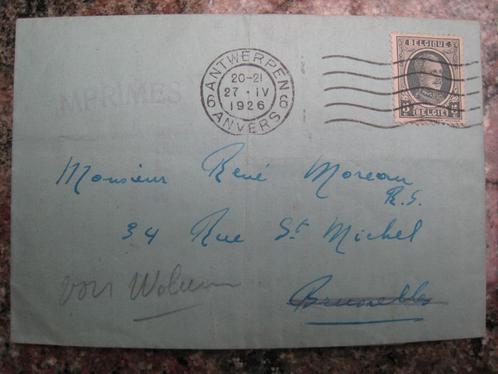 BELGIQUE
5 5
BELGIË
ANTWERPEN
20-21
27 · IV
1926
6 6
ANVERS
IMPRIMES
Monsieur René Moreau
R.S.
34 Rue St Michel
Bruxelles